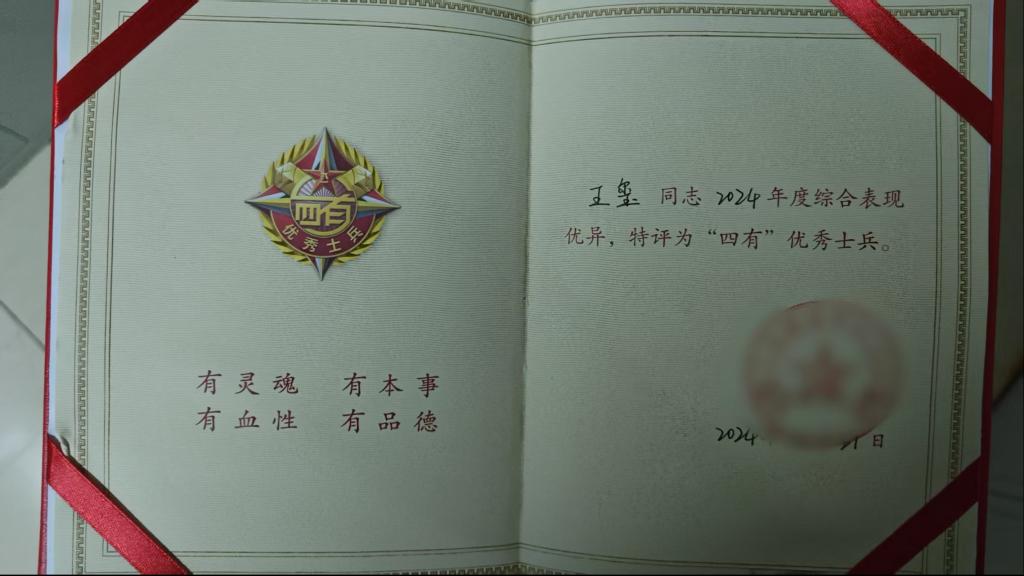 四有
优秀士兵
有灵魂 有本事
有血性 有品德
王玺 同志 2024 年度综合表现
优异，特评为“四有”优秀士兵。
2024 日